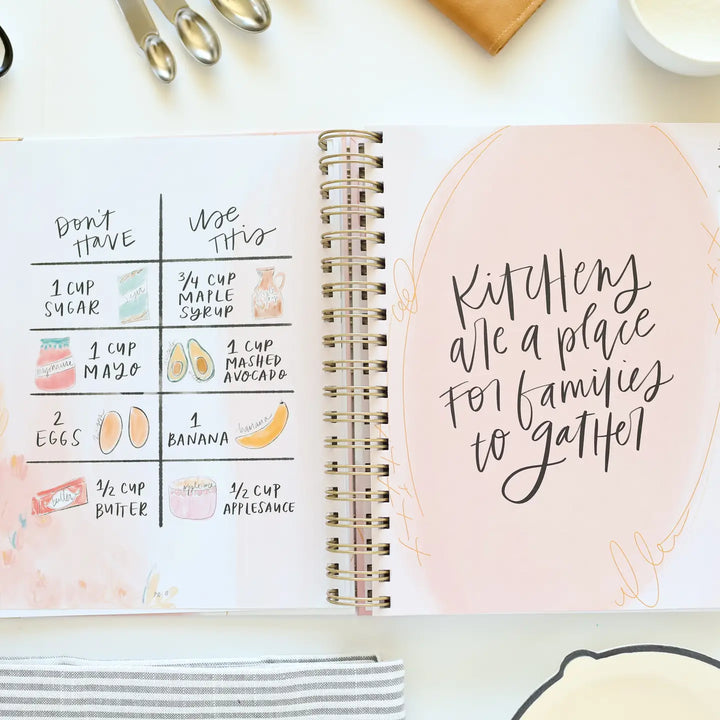 Don't
Have
Use
This
1 CUP
SUGAR
3/4 CUP
MAPLE
SYRUP
mayonnaise
1 CUP
MAYO
1 CUP
MASHED
AVOCADO
2
EGGS
1
BANANA
banana
butter
1/2 CUP
BUTTER
1/2 CUP
APPLESAUCE
Kitchens
are a place
for families
to gather